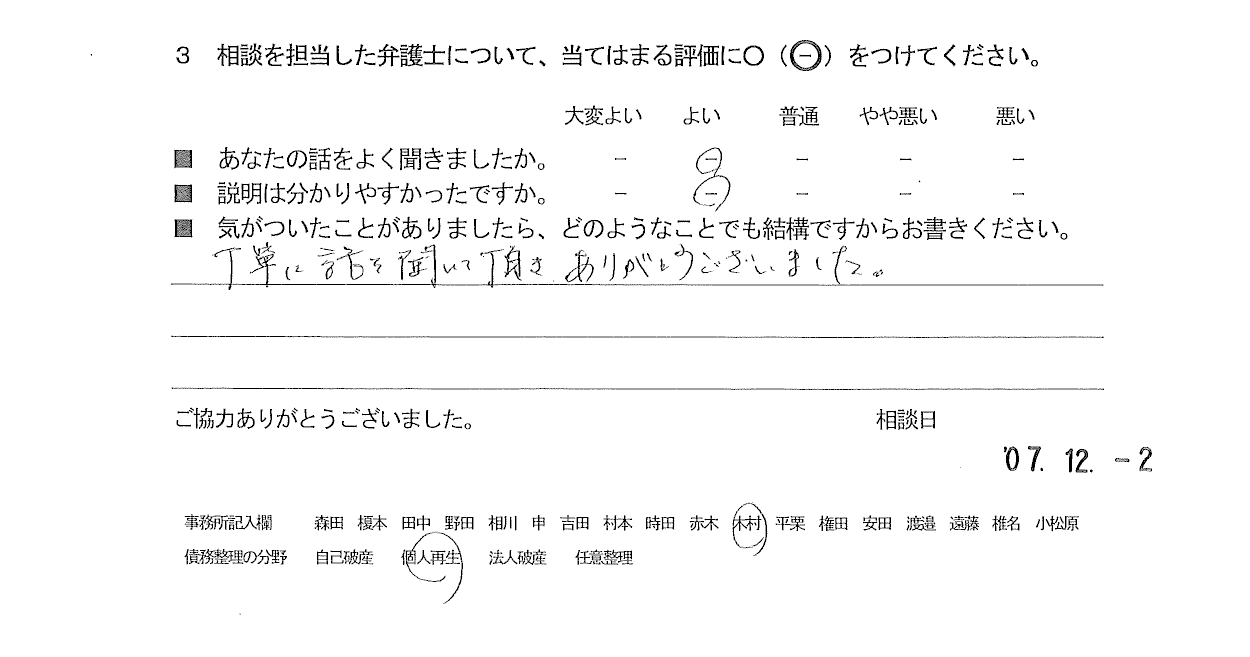 3 相談を担当した弁護士について、当てはまる評価に〇（㊀）をつけてください。
大変よい よい 普通 やや悪い 悪い
■ あなたの話をよく聞きましたか。 − − − − −
■ 説明は分かりやすかったですか。 − − − − −
■ 気がついたことがありましたら、どのようなことでも結構ですからお書きください。
丁寧に話を聞いて頂きありがとうございました。
ご協力ありがとうございました。 相談日
'07. 12. -2
事務所記入欄 森田 榎本 田中 野田 相川 申 吉田 村本 時田 赤木 木村 平栗 権田 安田 渡邉 遠藤 椎名 小松原
債務整理の分野 自己破産 個人再生 法人破産 任意整理